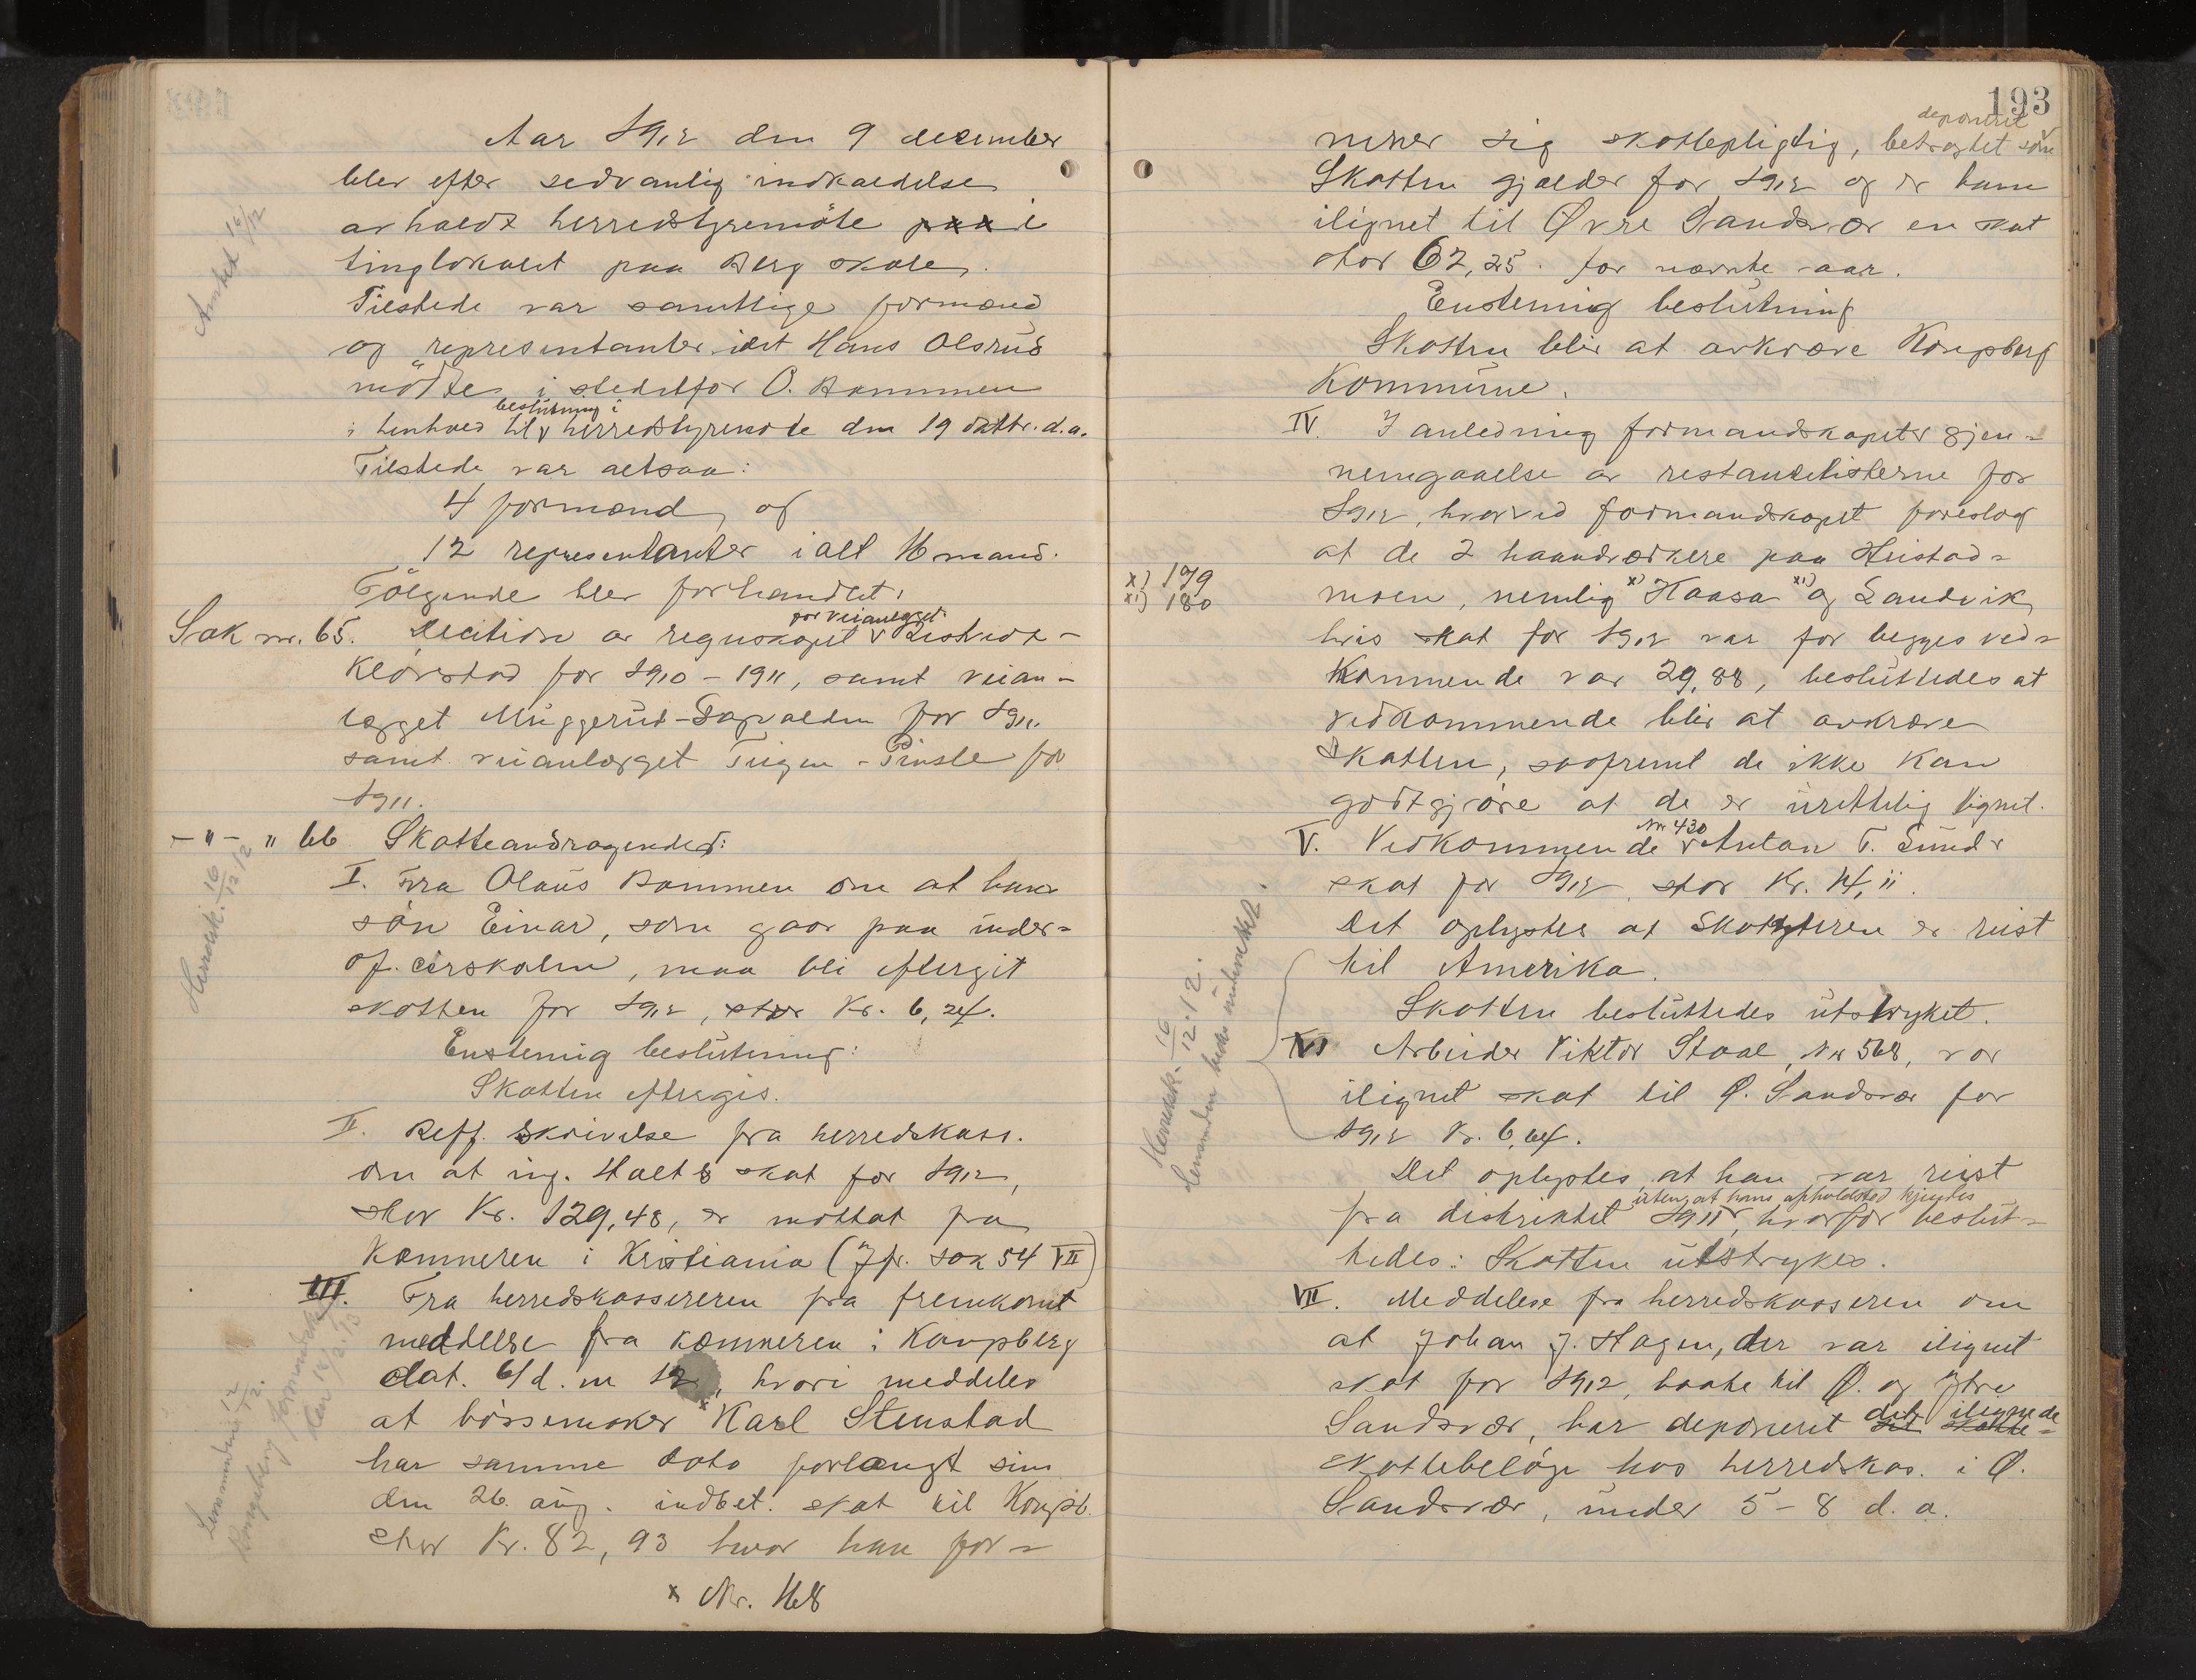 Aar 1912 den 9 december
blev efter sedvanlig indkaldelse
avholdt herredstyremöte paa i
tinglokalet paa Berg skole.
Tilstede var samtlige formænd
og representanter idet Hans Olsrud
mötte i stedetfor O. Bammen
i henhold til beslutning i herredstyremöte den 19 oktbr. d.a.
Tilstede var altsaa:
4 formænd, og
12 representanter ialt 16 mand.
Følgende blev forhandlet:
Sak nr. 65. Decition av regnskapet for veianlægget
Klövstad for 1910 - 1911, samt veian-
lægget Muggerud - for 1911
samt veianlægget Teigen - Pinsle for
1911.
- " - " 66 Skatteandragender:
I. Fra Olaus Bammen om at hans
sön Einar, som gaar paa under-
of.cerskolen, maa bli eftergit
skatten for 1912, stor Kr. 6,24.
Enstemig beslutning:
Skatten eftergis.
II. Reff. skrivelse fra herredskass.
om at ing. Holts skat for 1912,
stor Kr. 129,48, er mottat fra
Kemneren i Kristiania (Jfr. sak 54 VII)
III. Fra herredskassereren fra fremkomt
meddelse fra kemneren i Kongsberg
dat. 6/d.m 12, hvori meddeles
at börsemaker x Karl Stenstad
har samme dato forlangt sin
den 26 aug. indbet. skat til Kongsb.
stor Kr. 82,93 hvor han for-
x Nr. 168
Anket 16/12
Herredsk. 16/12 12
193
mener sig skattepligtig, betragtet som deponeret
Skatten gjælder for 1912 og er ham
ilignet til Øvre Sandsvær en skat
stor 62,25. for nævnte aar.
Enstemig beslutning
Skatten blir at avkræve Kongsberg
Kommune.
IV. I anledning formandskapets gjen-
nemgaaelse av restancelisterne for
1912, hvorved formandskapet foreslog
at de 2 haandverkere paa Heistad-
x) 179
x1) 180
moen, nemlig x) Haasa x1) og Landvik
hvis skat for 1912 var for begges ved-
kommende var 29,88, besluttedes at
vedkommende blir at avkræve
skatten, saafremt de ikke kan
godtgjöre at de er urettelig lignet.
V. Vedkommende Nr 430 Anton T. Sund's
skat for 1912, stor Kr. 14,11.
Det oplystes at Skatyteren er reist
til Amerika.
Skatten besluttedes utstryket.
VI Arbeider Viktor Staal, Nr 568, var
ilignet skat til Ø. Sandsvær for
1912 Kr. 6,64.
Det oplystes at han var reist
fra distriktet 1911 uten at hans opholdsted kjendtes, hvorfor beslut-
tedes: Skatten utstrykes.
VII. Meddelese fra herredskasseren om
at Johan J. Hagen, der var ilignet
skat for 1912, baate til Ø. og Ytre
Sandsvær, har deponeret det skatte- det ilignede
skattebelöp hos herredskas. i Ø.
Sandsvær, under 5 - 8 d. a.
Herredsk. 16/12.12.